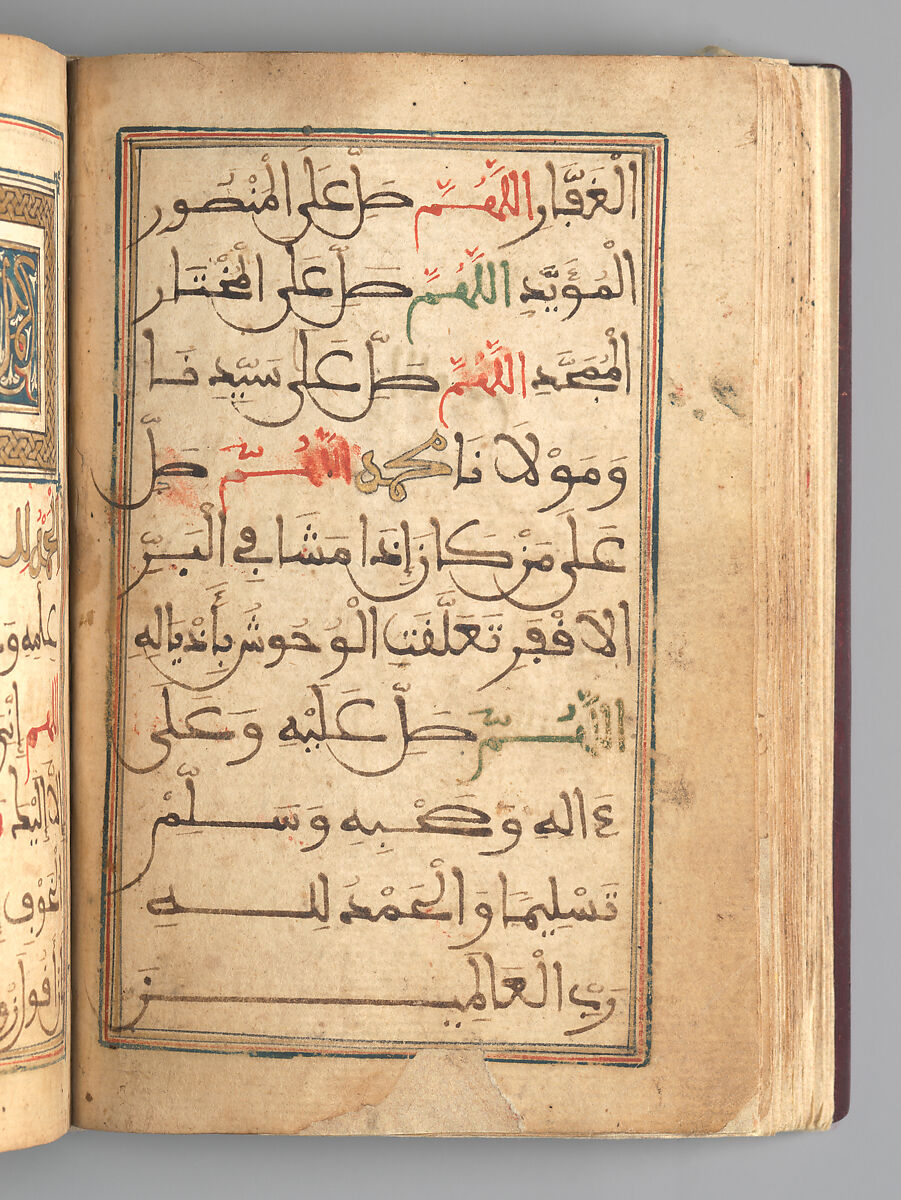 الْغَفَّارِ اللَّهُمَّ صَلِّ عَلَى الْمَنْصُورِ
الْمُؤَيَّدِ اللَّهُمَّ صَلِّ عَلَى الْمُخْتَارِ
الْمُمَجَّدِ اللَّهُمَّ صَلِّ عَلَى سَيِّدِنَا
وَمَوْلَانَا مُحَمَّد اللَّهُمَّ صَلِّ
عَلَى مَنْ كَانَ إِذَا مَشَا فِي الْبَرِّ
الاقْفَرِ تَعَلَّقَتِ الْوُحُوشُ بِأَذْيَالِهِ
اللَّهُمَّ صَلِّ عَلَيْهِ وَعَلَى
ءَالِهِ وَصَحْبِهِ وَسَلِّمْ
تَسْلِيمًا وَالْحَمْدُ لِلهِ
رَبِّ الْعَالَمِينَ